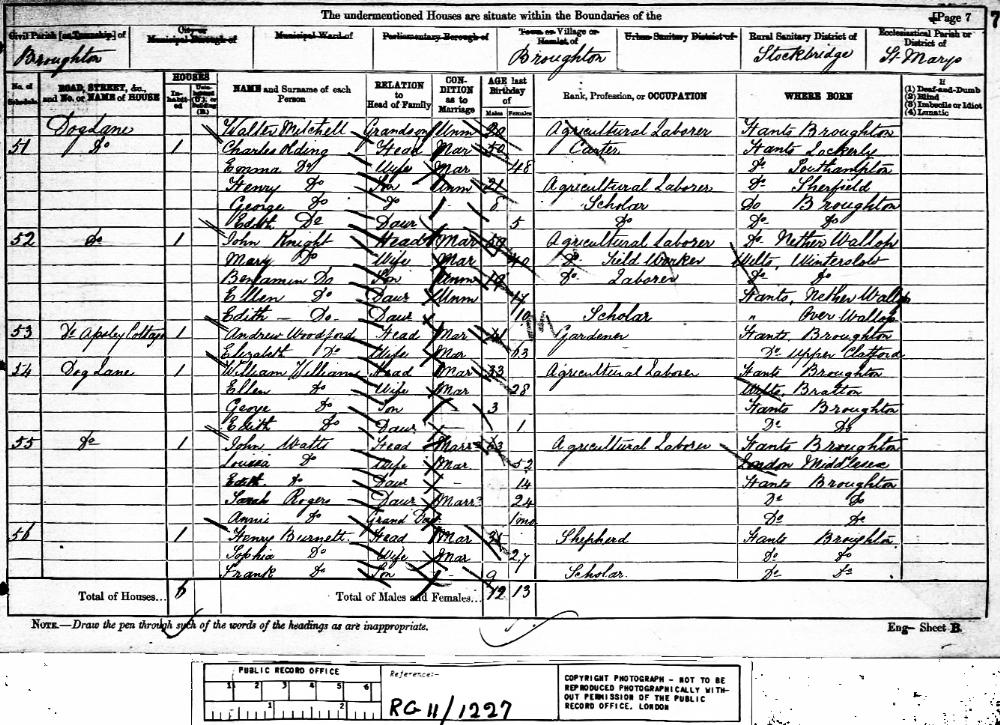 The undermentioned Houses are situate within the Boundaries of the
[Page 7
7
Civil Parish [or Township] of
City or Municipal Borough of
Municipal Ward of
Parliamentary Borough of
Town or Village or Hamlet of
Urban Sanitary District of
Rural Sanitary District of
Ecclesiastical Parish or District of
Broughton
Broughton
Stockbridge
St Marys
No. of Schedule
ROAD, STREET, &c., and No. or NAME of HOUSE
HOUSES
In-habited
NAME and Surname of each Person
RELATION to Head of Family
CON-DITION as to Marriage
AGE last Birthday of
Males
Females
Rank, Profession, or OCCUPATION
WHERE BORN
(1) Deaf-and-Dumb
(2) Blind
(3) Imbecile or Idiot
(4) Lunatic
Dog Lane Walter Mitchell Grandson Unm 20 Agricultural Laborer Hants Broughton
51 Do 1 Charles Olding Head Mar 50 Carter Hants Lockerly
Emma Do Wife Mar 48 Do Southampton
Henry Do Son Unm 21 Agricultural Laborer Do Sherfield
George Do Do - 8 Scholar Do Broughton
Edith Do Daur 5 Do Do Do
52 Do 1 John Knight Head Mar 50 Agricultural Laborer Do Nether Wallop
Mary Do Wife Mar 40 Do Field Worker Wilts, Winterslow
Benjamin Do Son Unm 19 Do Laborer Do Do
Ellen Do Daur Unm 17 Hants, Nether Wallop
Edith - Do - Daur 10 Scholar " Over Wallop
53 Apsley Cottage 1 Andrew Woodford Head Mar Gardener Hants Broughton
Elizabeth Do Wife Mar 63 Do Upper Clatford
54 Dog Lane 1 William Williams Head Mar 33 Agricultural Laborer Hants Broughton
Ellen Do Wife Mar 28 Wilts, Bratton
George Do Son - 3 Hants Broughton
Edith Do Daur 1 Do Do
55 Do 1 John Watts Head Marr 63 Agricultural Laborer Hants Broughton
Louisa Do Wife Mar 52 London Middlesex
Edith Do Daur - 14 Hants Broughton
Sarah Rogers Daur Marr 24 Do Do
Annie Do Grand Daur 1mo Do Do
56 1 Henry Burnett Head Mar 35 Shepherd Hants Broughton
Sophia Do Wife Mar 27 Do Do
Frank Do Son - 9 Scholar Do Do
Total of Houses... 6
Total of Males and Females... 12 13
NOTE.—Draw the pen through such of the words of the headings as are inappropriate.
Eng- Sheet B.
PUBLIC RECORD OFFICE
1 2 3 4 5 6
1 2
Reference:-
RG 11/1227
COPYRIGHT PHOTOGRAPH - NOT TO BE
REPRODUCED PHOTOGRAPHICALLY WITH-
OUT PERMISSION OF THE PUBLIC
RECORD OFFICE, LONDON